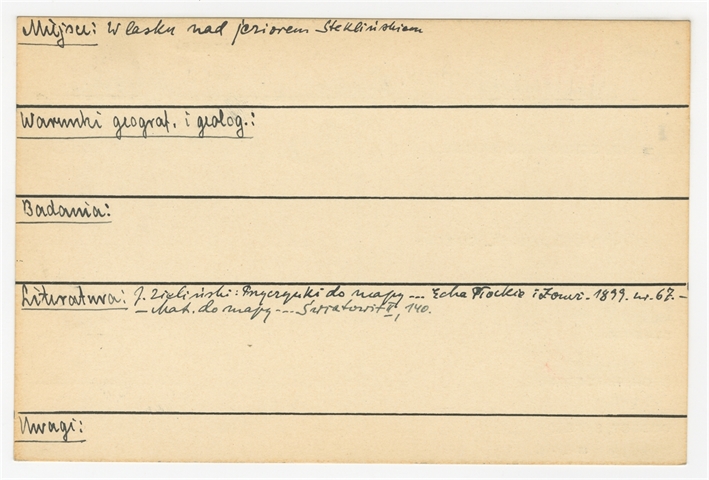 Miejsce: W lasku nad jeziorem Steklińskiem
Warunki geograf. i geolog.:
Badania:
Literatura: J. Zieliński: Przyczynki do mapy... Echa Płockie i Łomż. 1899. nr. 67. –
– Mat. do mapy... Światowit II, 140.
Uwagi: